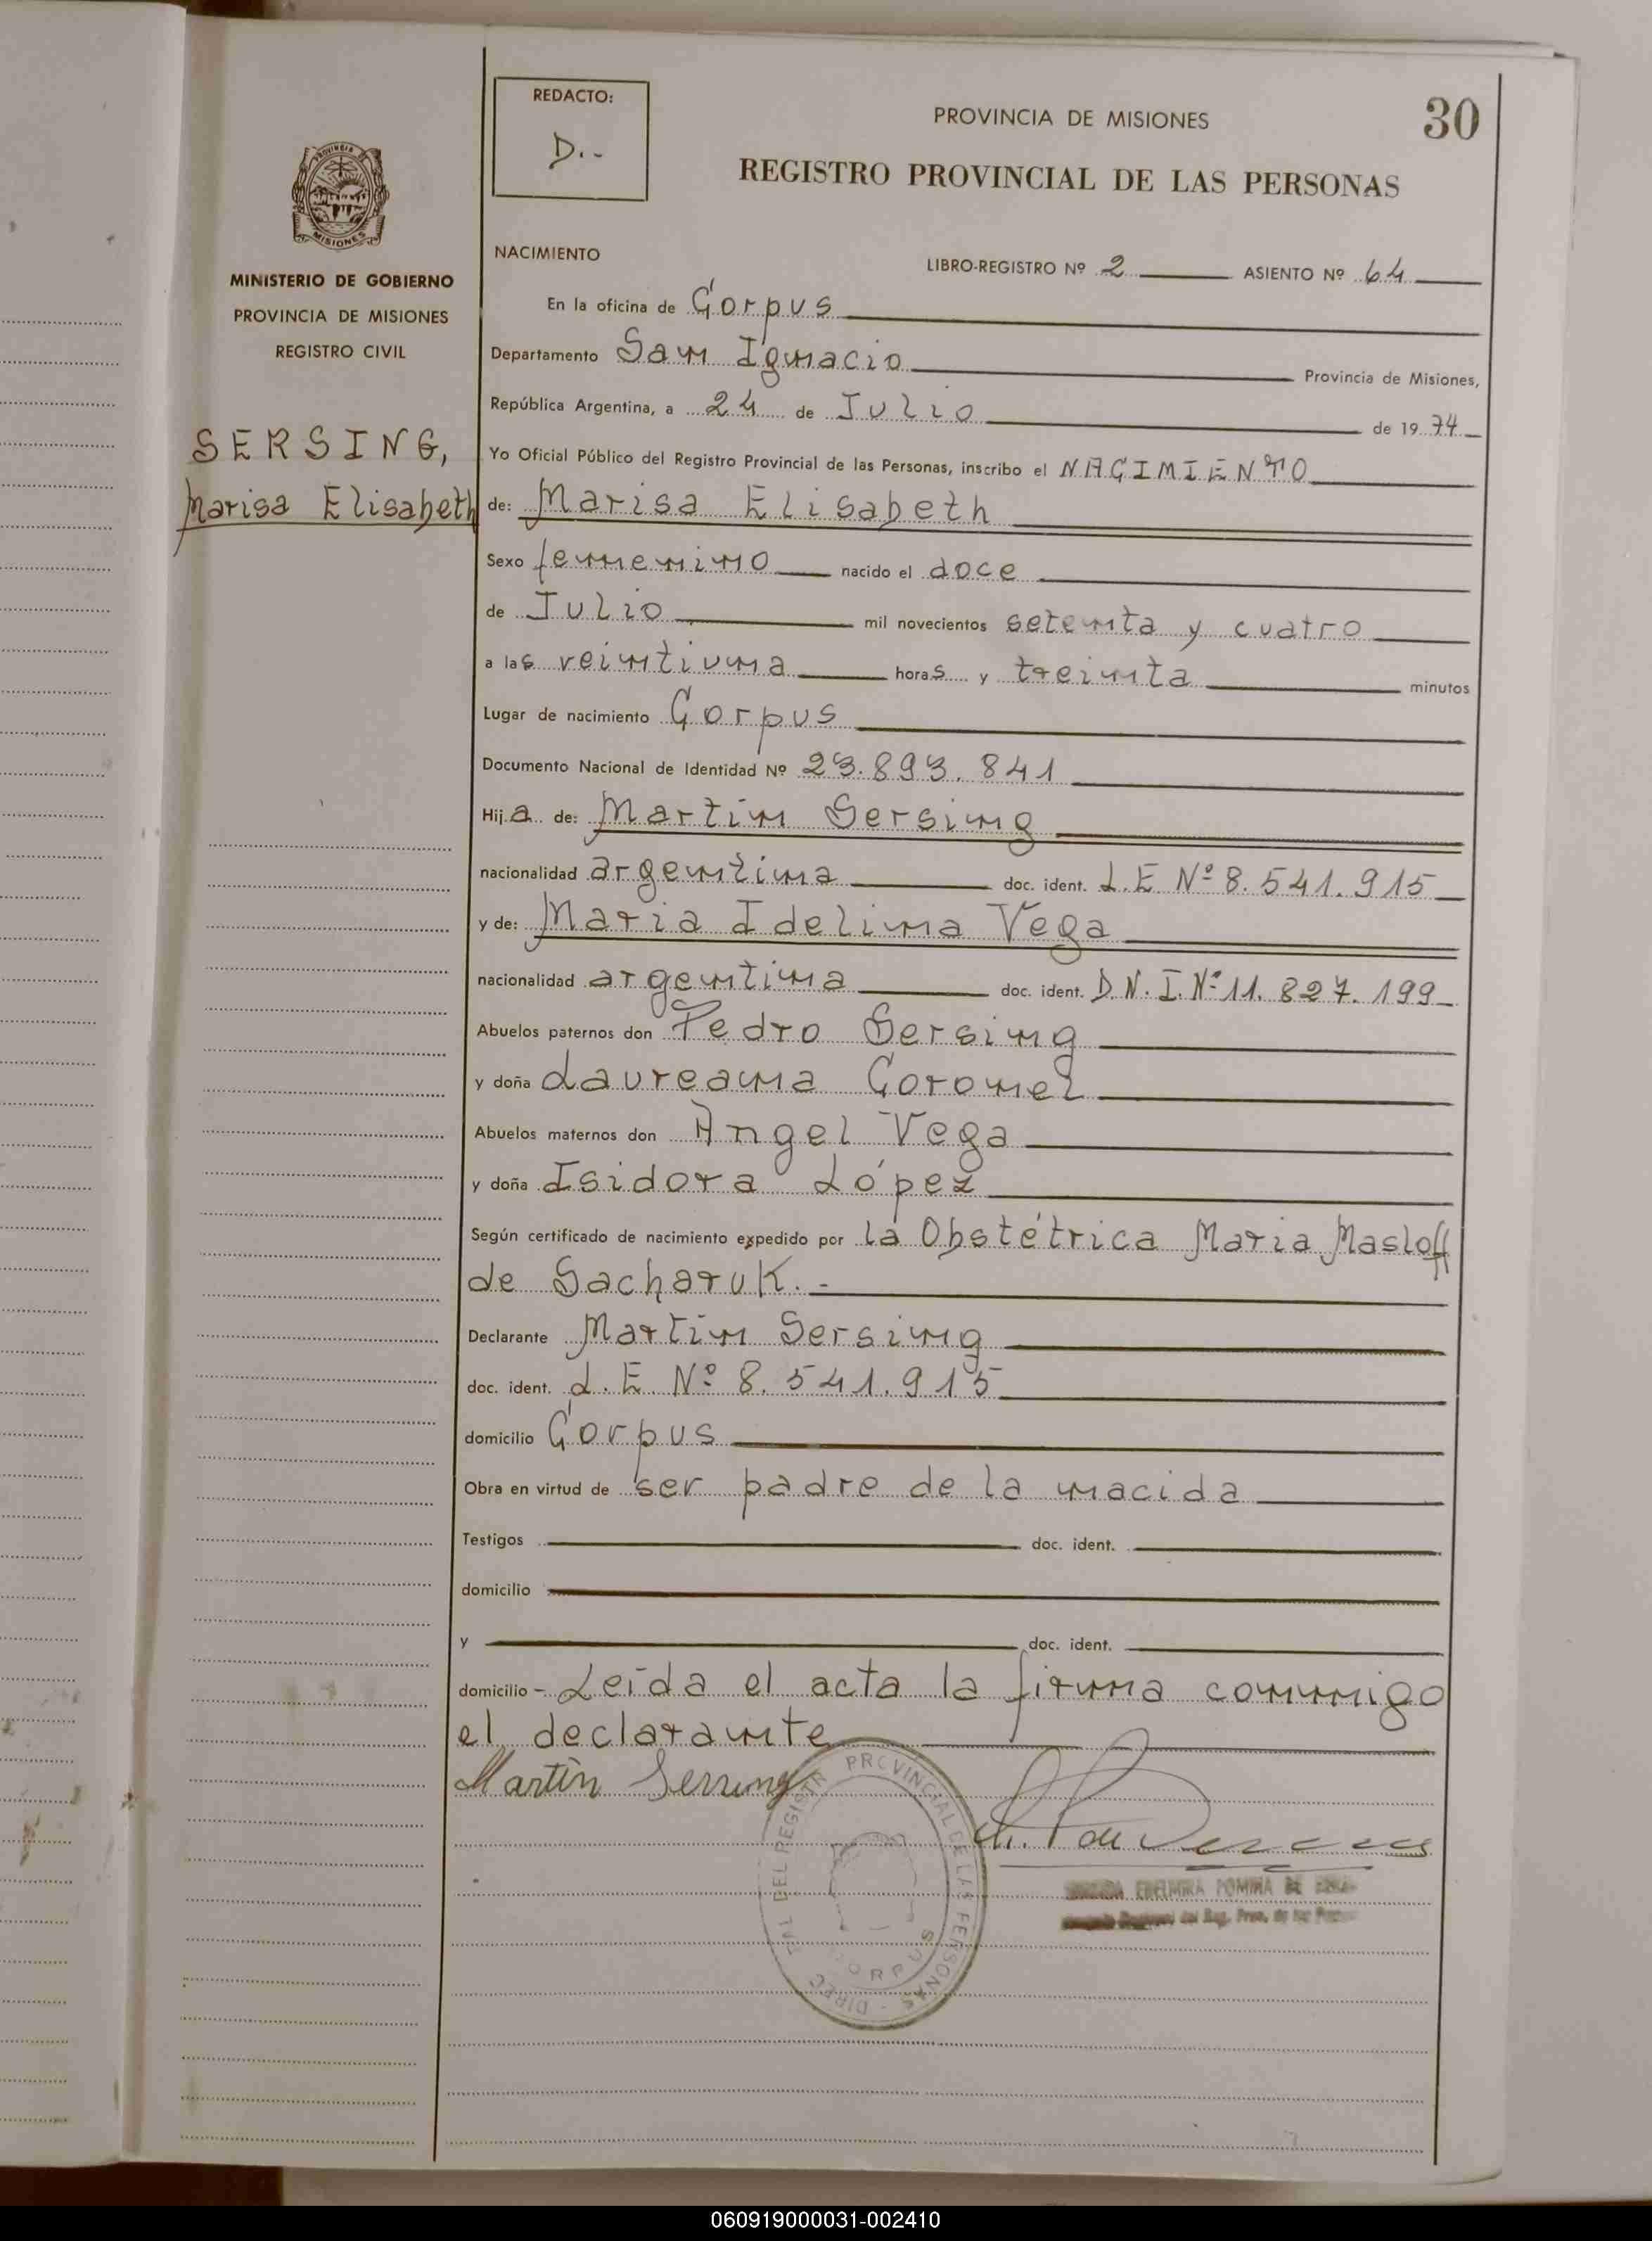 REDACTO:
D.-
PROVINCIA DE MISIONES
30
REGISTRO PROVINCIAL DE LAS PERSONAS
PROVINCIA DE
MISIONES
MINISTERIO DE GOBIERNO
PROVINCIA DE MISIONES
REGISTRO CIVIL
SERSING,
Marisa Elisabeth
NACIMIENTO
LIBRO-REGISTRO Nº 2 ASIENTO Nº 64
En la oficina de Corpus
Departamento San Ignacio Provincia de Misiones,
República Argentina, a 24 de Julio de 1974
Yo Oficial Público del Registro Provincial de las Personas, inscribo el NACIMIENTO
de: Marisa Elisabeth
Sexo femenino nacido el doce
de Julio mil novecientos setenta y cuatro
a las veintiuna horas y treinta minutos
Lugar de nacimiento Corpus
Documento Nacional de Identidad Nº 23.893.841
Hija de: Martin Sersing
nacionalidad argentina doc. ident. L.E Nº 8.541.915
y de: Maria Idelina Vega
nacionalidad argentina doc. ident. D.N.I.Nº 11.827.199
Abuelos paternos don Pedro Sersing
y doña Laureana Coronel
Abuelos maternos don Angel Vega
y doña Isidora López
Según certificado de nacimiento expedido por la Obstétrica Maria Masloff
de Sacharuk.-
Declarante Martin Sersing
doc. ident. L.E. Nº 8.541.915
domicilio Corpus
Obra en virtud de ser padre de la nacida
Testigos doc. ident.
domicilio
y doc. ident.
domicilio - Leída el acta la firma conmigo
el declarante
Martin Sersing
PROVINCIAL DE LAS PERSONAS - DIREC
DEL REGISTR
CORPUS
EDELMIRA POMIRA DE
del Reg. Prov. de las
060919000031-002410